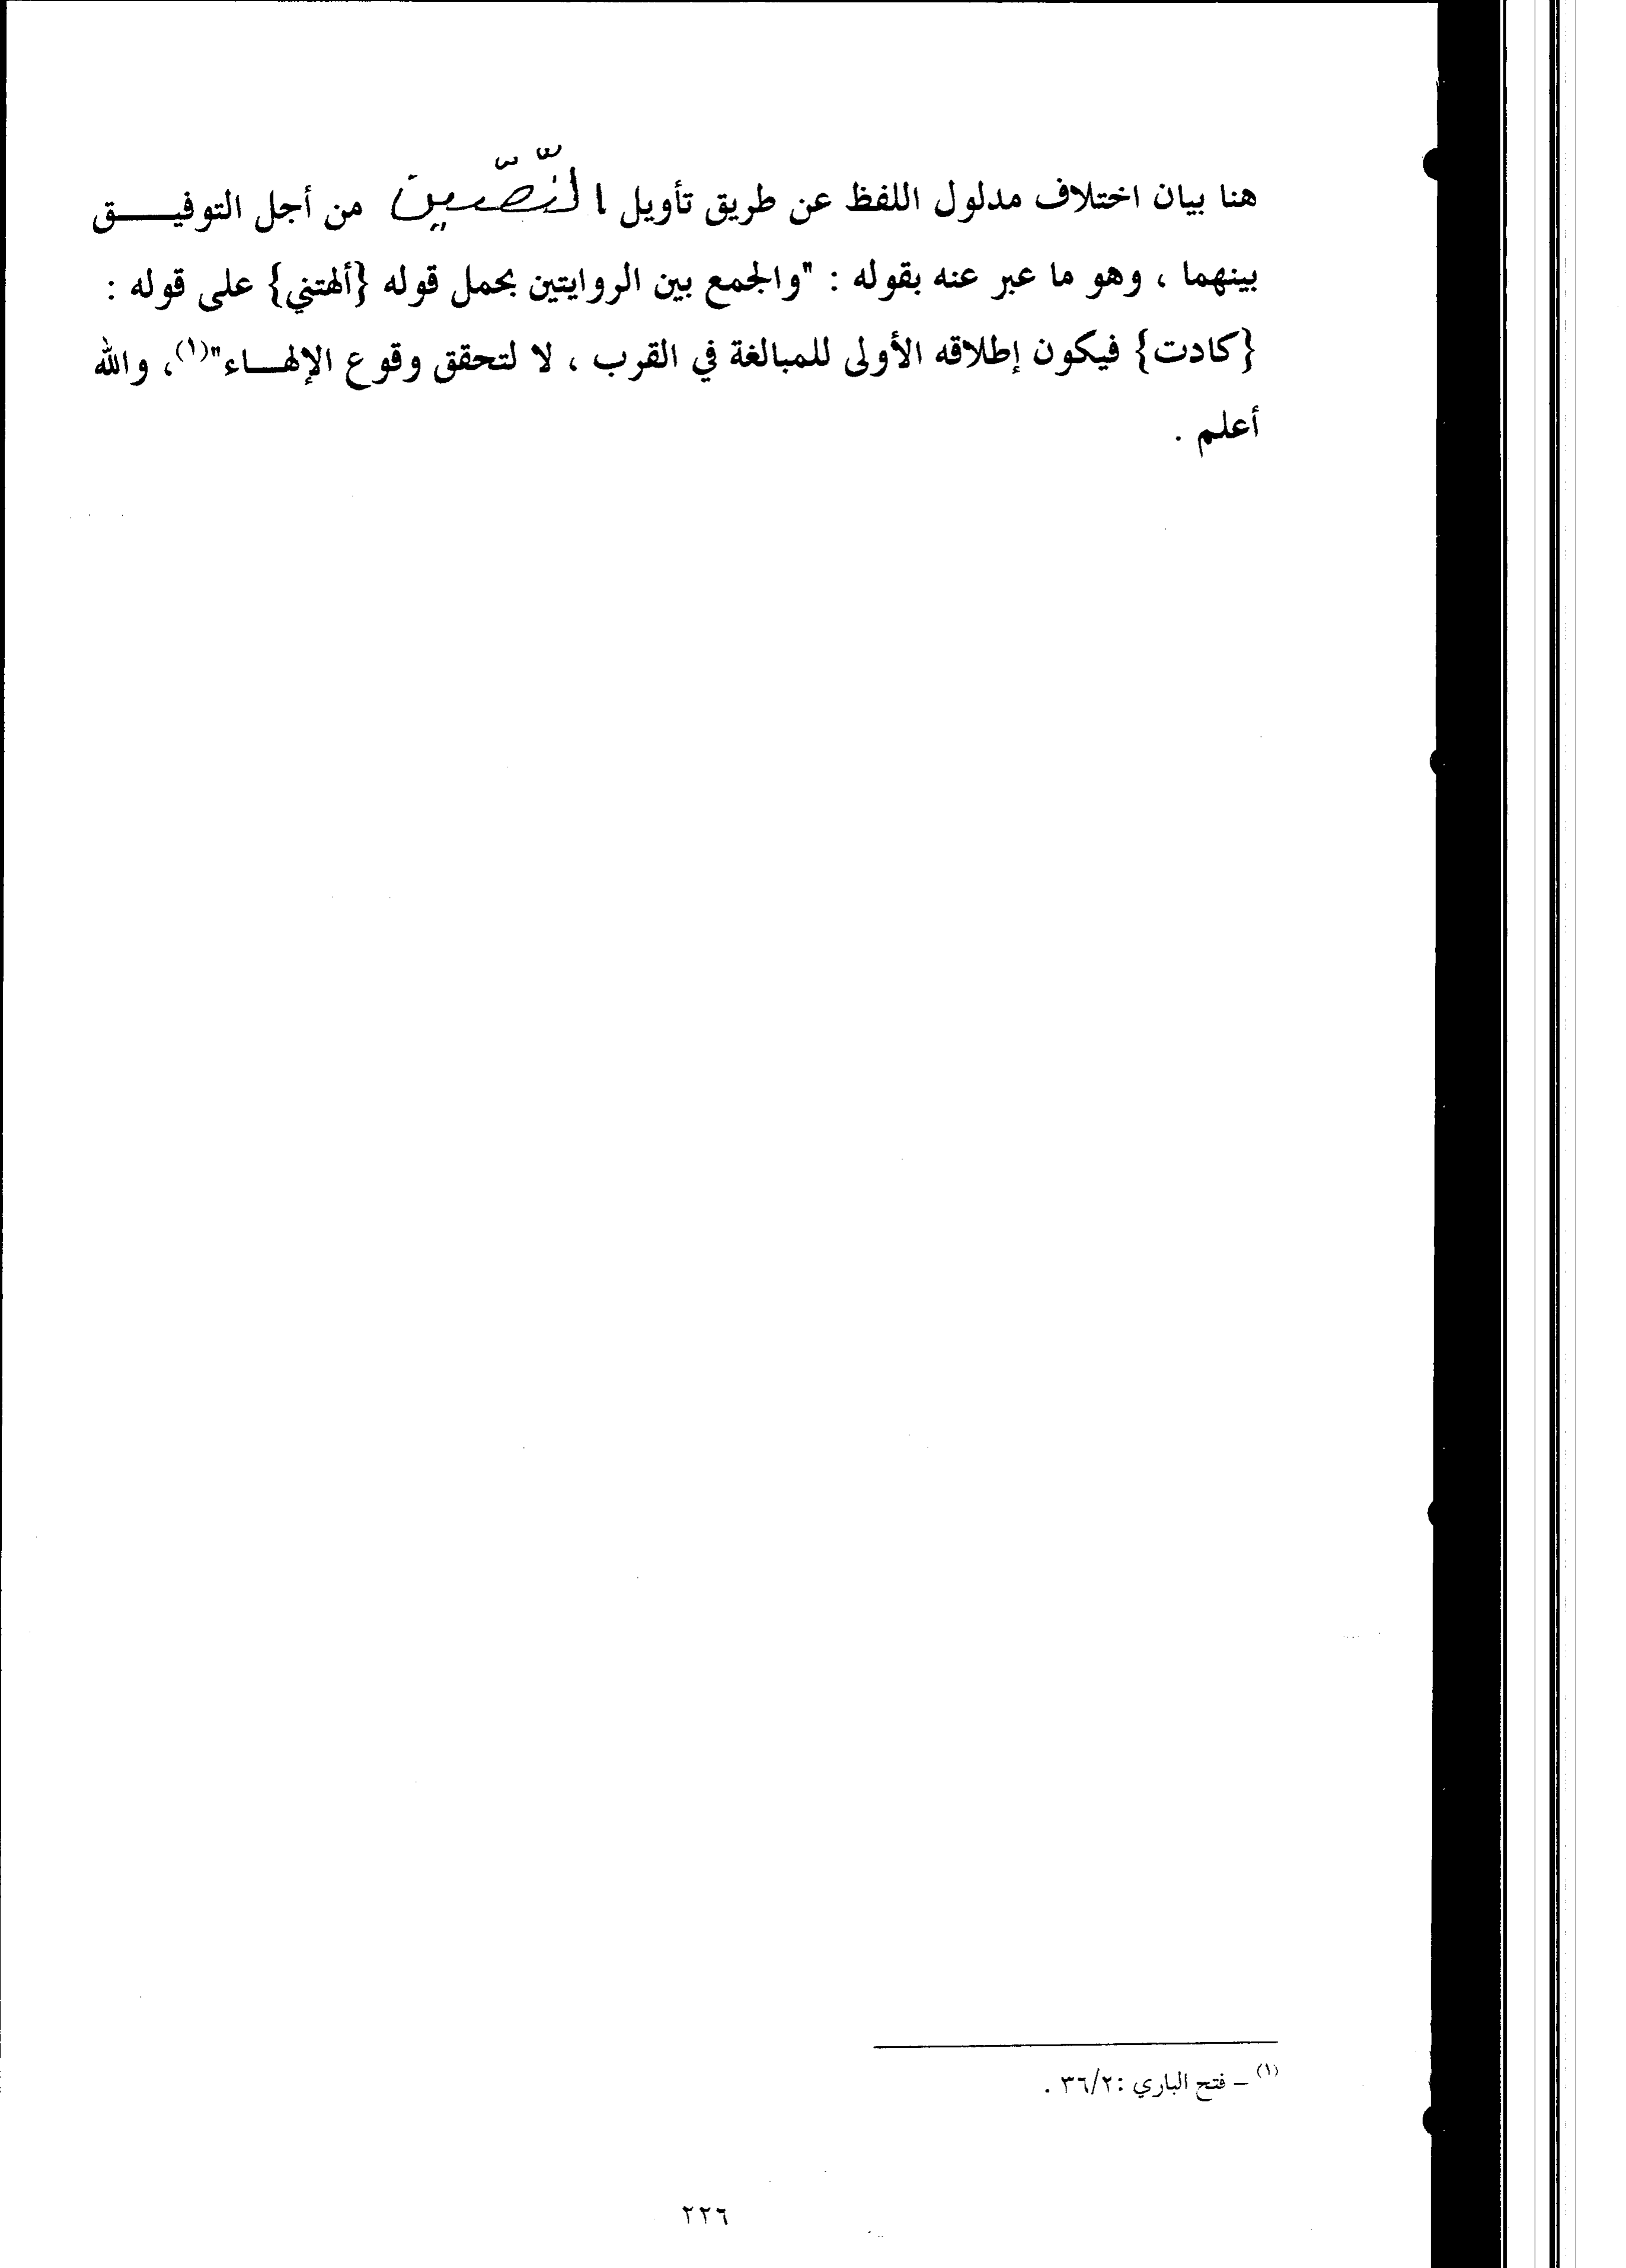 هنا بيان اختلاف مدلول اللفظ عن طريق تأويل النّصّين من أجل التوفيــــق
بينهما ، وهو ما عبر عنه بقوله : "والجمع بين الروايتين بحمل قوله {ألهتني} على قوله :
{كادت} فيكون إطلاقه الأولى للمبالغة في القرب ، لا لتحقق وقوع الإلهـــاء"(١)، والله
أعلم .
(١) – فتح الباري :٣٦/٢ .
٢٢٦